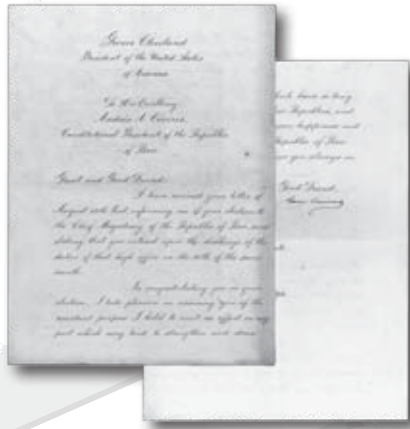 Grover Cleveland
President of the United States
of America
To His Excellency
Andrés A. Cáceres
Constitutional President of the Republic
of Peru
Great and Good Friend:
I have received your letter of
August 10th last informing me of your election to
the Chief Magistracy of the Republic of Peru and
stating that you entered upon the discharge of the
duties of that high office on the 10th of the same
month.
In congratulating you on your
election, I take pleasure in assuring you of the
constant purpose I hold to omit no effort on my
part which may tend to strengthen and
have so long
Republics, and
happiness and
Republic of Peru
you always in
Good Friend,